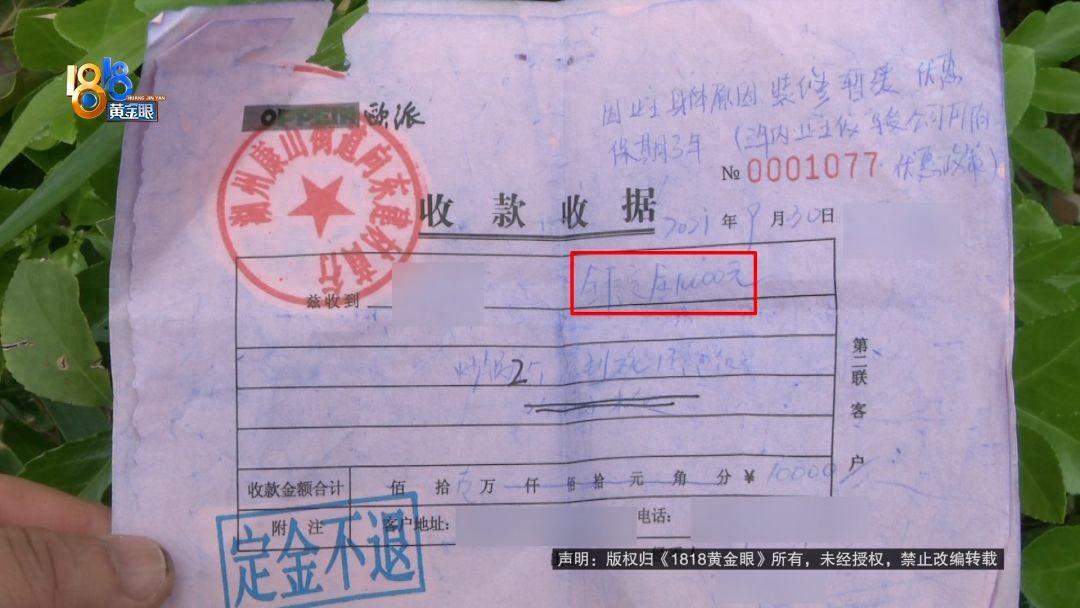 1818
HUANG JIN YAN
黄金眼
OPPEIN 欧派
因业主身体原因 装修暂缓 优惠
保期3年
优惠政策)
№ 0001077
收款收据
2021年9月30日
湖州康山街道向东建材商行
兹收到
定金10000元
炒锅2个
第二联 客户
收款金额合计 佰 拾 万 仟 佰 拾 元 角 分 ¥ 10000
附注 客户地址: 电话:
定金不退
声明:版权归《1818黄金眼》所有,未经授权,禁止改编转载